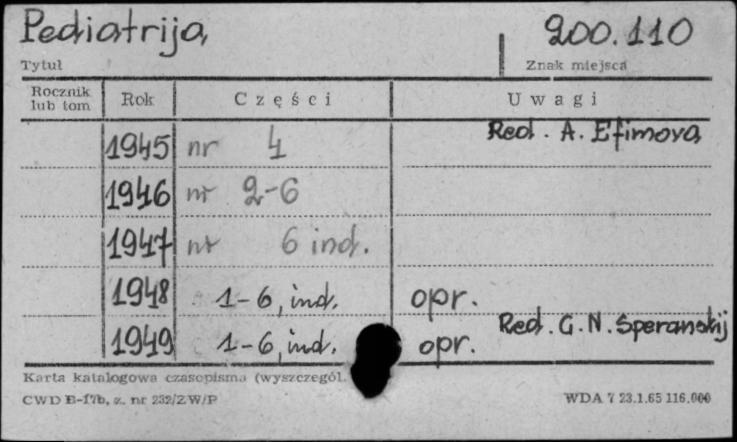 Pediatrija, 200.110
Tytuł Znak miejsca
Rocznik lub tom Rok Części Uwagi
Red. A. Efimova
1945 nr 4
1946 nr 2-6
1947 nr 6 ind.
1948 1-6, ind. opr.
Red. G. N. Speranskij
1949 1-6, ind. opr.
Karta katalogowa czasopisma (wyszczegól.
CWD B-17b, z. nr 232/ZW/P WDA 7 23.1.65 116.000